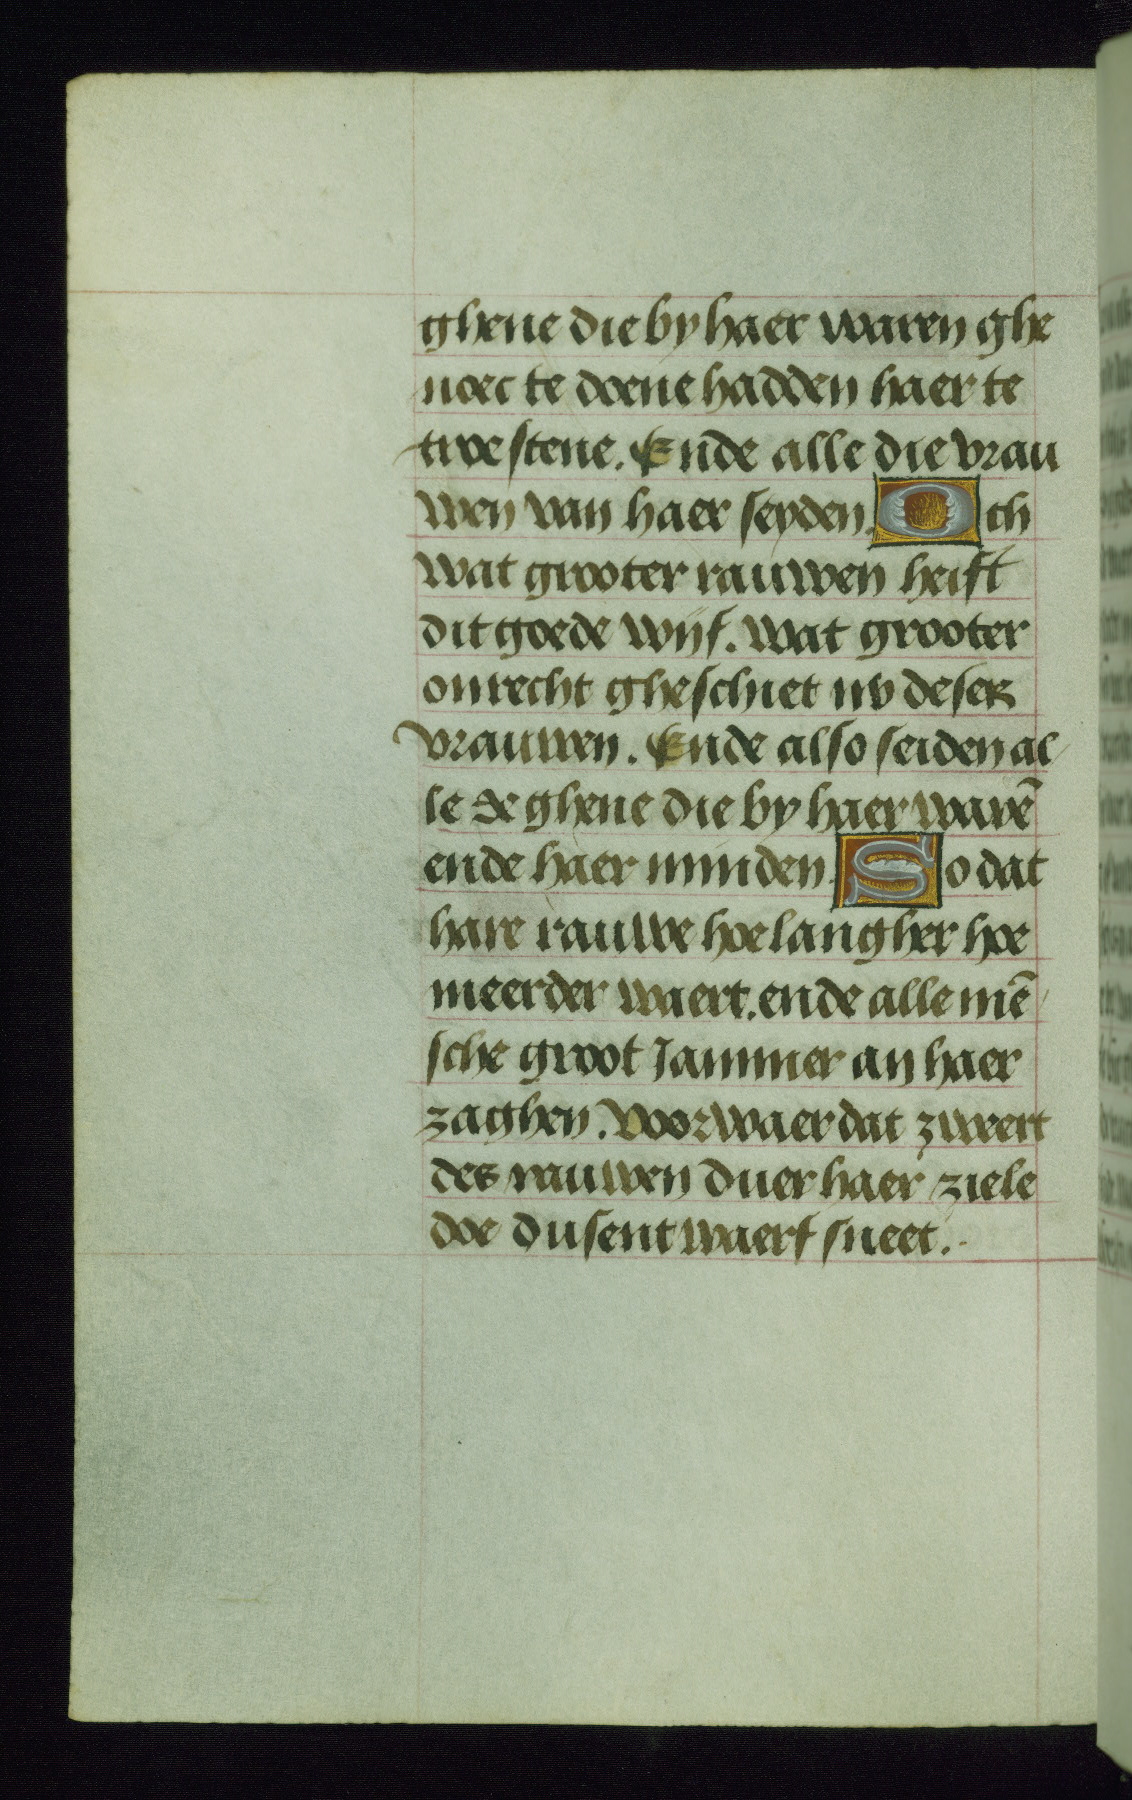 ghene die by haer waren ghe
noec te doene hadden haer te
troestene. Ende alle die vrau
wen van haer seyden. Och
wat grooter rauwen heift
dit goede wijf. wat grooter
onrecht gheschiet nv deser
vrauwen. Ende also seiden al
le de ghene die by haer warē
ende haer minden. So dat
hare rauwe hoe langher hoe
meerder waert. ende alle mē
sche groot Jammer an haer
zaghen. Voorwaer dat zweert
des rauwen duer haer ziele
doe dusent waerf sneet.